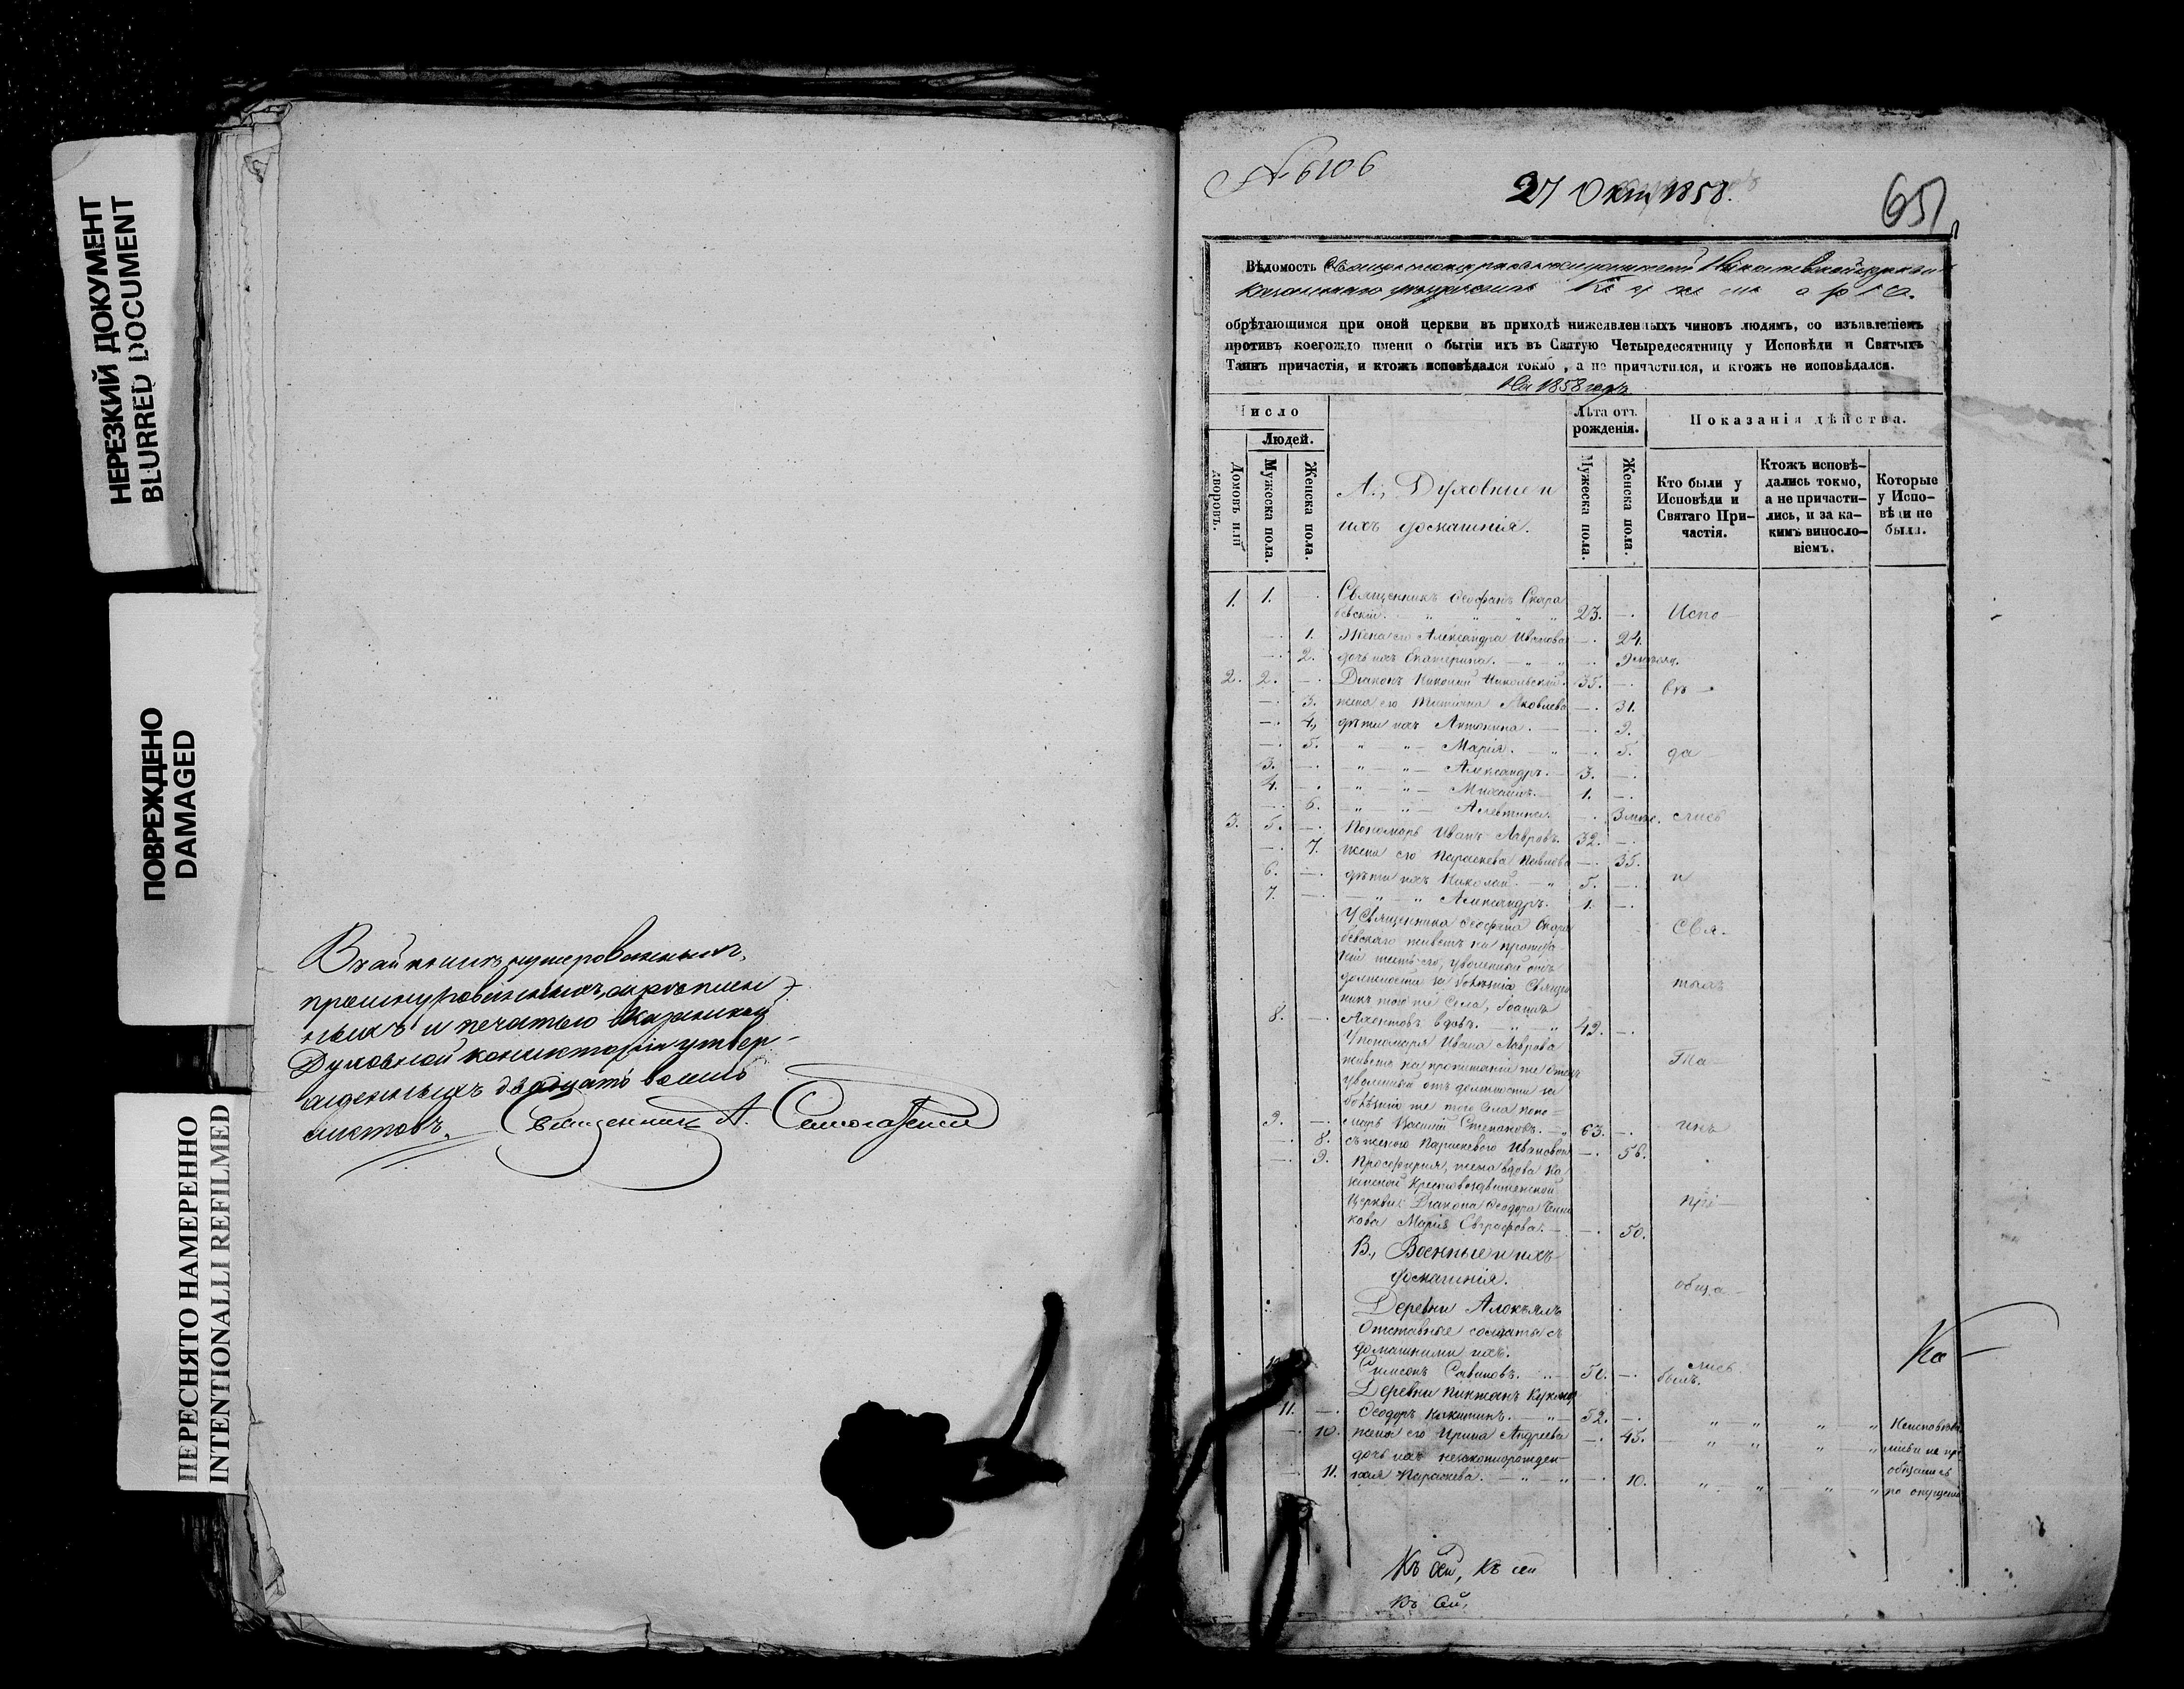 НЕРЕЗКИЙ ДОКУМЕНТ
BLURRED DOCUMENT
ПОВРЕЖДЕНО
DAMAGED
ПЕРЕСНЯТО НАМЕРЕННО
INTENTIONALLI REFILMED
нумерованныхъ,
прошнурованныхъ, скрѣплен-
ныхъ и печатью Казанской
Духовной консисторіи утвер-
жденныхъ двадцать восемь
листовъ. Священникъ А.
№ 6106
27 Окт 1858.
651
Вѣдомость
обрѣтающимся при оной церкви въ приходѣ нижеявленныхъ чиновъ людямъ, со изъявленіемъ
противъ коегождо имени о бытіи ихъ въ Святую Четыредесятницу у Исповѣди и Святыхъ
Таинъ причастія, и ктожъ исповѣдался токмо, а не причастился, и ктожъ не исповѣдался.
1858 годъ
Число
Людей.
Домовъ или дворовъ.
Мужеска пола.
Женска пола.
А., Духовные и
ихъ домашнія.
Лѣта отъ рожденія.
Мужеска пола.
Женска пола.
Показанія дѣйства.
Кто были у Исповѣди и Святаго Причастія.
Ктожъ исповѣдались токмо, а не причастились, и за какимъ винословіемъ.
Которые у Исповѣди не были.
1. 1. —. Священникъ Ѳеофанъ
23. —. Испо—
—. 1. Жена его Александра Иванова —. 24.
—. 2. дочь ихъ Екатерина. —.
2. 2. —. Діаконъ Николай Никольскій. 35. —.
—. 3. жена его Татіана Яковлева —. 31.
—. 4. дѣти ихъ Антонина. —.
—. 5. Марія. —. 5. да—
3. —. Александръ. 3. —.
4. —. Михаилъ. 1. —.
—. 6. Алевтина. —. 3 мѣс. лись
3. 5. —. Пономарь Иванъ Лавровъ. 32. —.
—. 7. жена его Параскева Павлова —. 35.
6. —. дѣти ихъ Николай. 5. —. и
7. —. Александръ. 1. —.
У Священника Ѳеофана
живетъ на пропита- Свя-
ніи тесть его, уволенный отъ
должности за болѣзнію Священ-
никъ того же Села, Іоаннъ тыхъ
8. —. вдовъ. 49. —.
У пономаря Ивана Лаврова
живетъ на пропитаніи же отецъ Та—
уволенный отъ должности за
болѣзнію же того Села поно-
9. —. марь Василій Степановъ. 63. —. инъ
—. 8. съ женою Параскевою Ивановою —. 56.
—. 9. Просфирня, жена вдова Ка-
занской Крестовоздвиженской
Церкви Діакона Ѳеодора прі—
Марія Евграфова. —. 50.
В., Военные и ихъ
домашнія. обща—
Деревни
Отставные солдаты съ
домашними ихъ.
Симеонъ Савиновъ. —. лись
Деревни
11. —. Ѳеодоръ Никитинъ. 52. —.
—. 10. жена его Ирина Андреева —. 45.
дочь ихъ незаконорожден-
—. 11. ная Параскева. —. 10. по опущенію
Ка—
Къ сей, къ сей
къ сей,